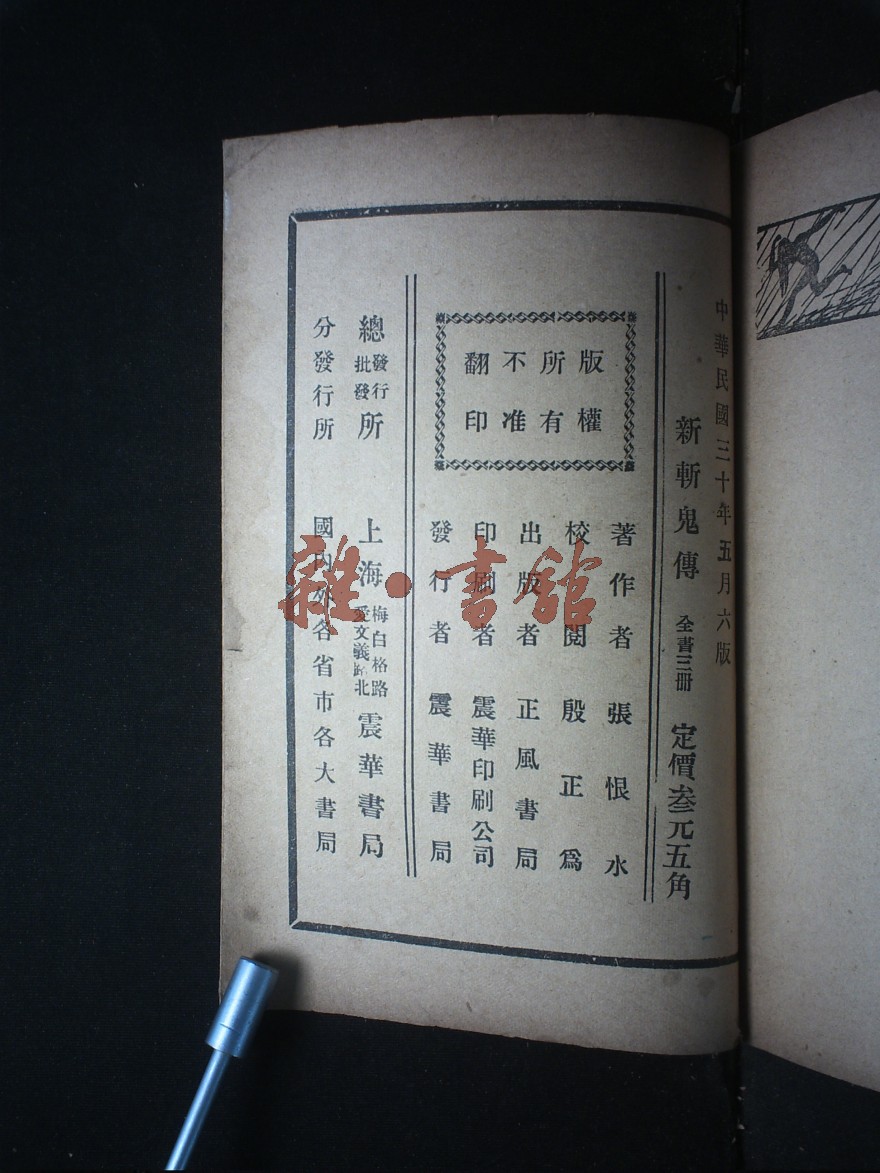 中華民國三十年五月六版
新斬鬼傳 全書三册 定價叁元五角
版權
所有
不准
翻印
著作者 張恨水
校閱 殷正爲
出版者 正風書局
印刷者 震華印刷公司
發行者 震華書局
總發行批發所 上海梅白格路愛文義路北 震華書局
分發行所 國內外各省市各大書局
雜·書館